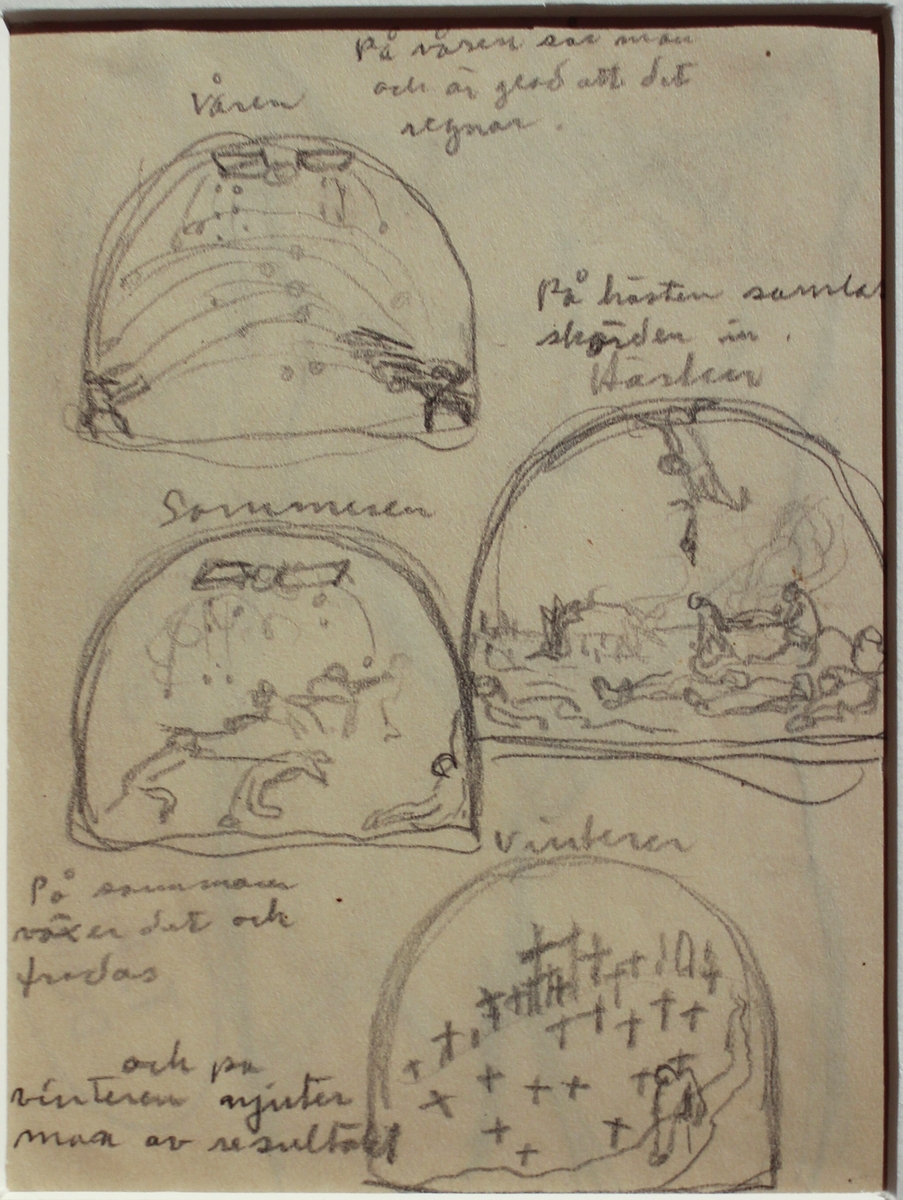 På våren sår man
och är glad att det
regnar.
Våren
På hösten samlas
skörden in.
Hösten
Sommeren
På sommaren
växer det och
frodas
Vinteren
och på
vinteren njuter
man av resultatet